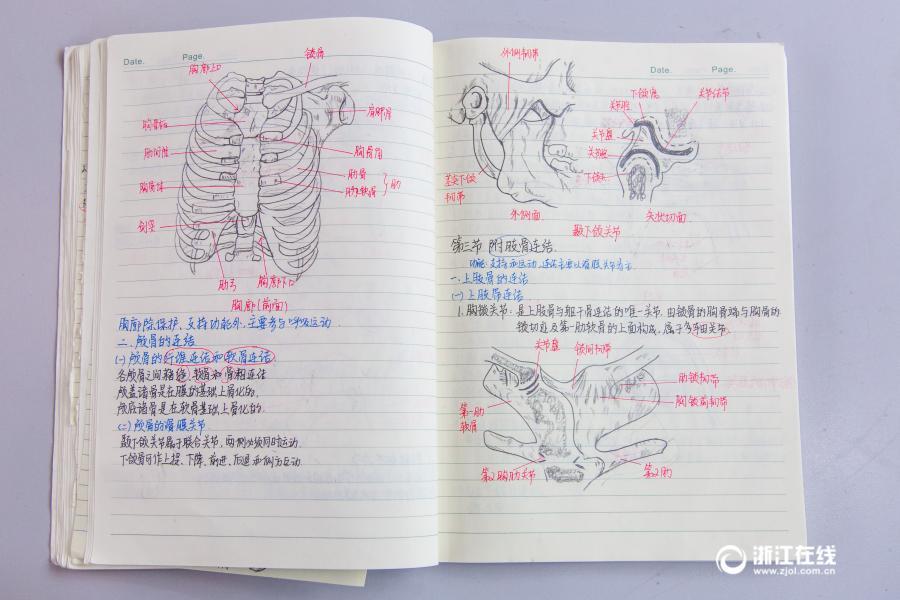 Date.
Page.
胸廓上口
锁骨
肩胛骨
胸骨柄
肋间隙
胸骨角
肋骨
肋软骨
肋
胸骨体
剑突
肋弓
胸廓下口
胸廓(前面)
胸廓除保护、支持功能外,主要参与呼吸运动.
二、颅骨的连结
(一)颅骨的纤维连结和软骨连结
各颅骨之间借缝、软骨和骨相连结
颅盖诸骨是在膜的基础上骨化的.
颅底诸骨是在软骨基础上骨化的.
(二)颅骨的滑膜关节.
颞下颌关节属于联合关节,两侧必须同时运动.
下颌骨可作上提、下降、前进、后退和侧方运动.
Date.
Page.
外侧韧带
下颌窝
关节结节
关节腔
关节盘
关节腔
下颌头
茎突下颌
韧带
外侧面
矢状切面
颞下颌关节
第三节 附肢骨连结.
功能:支持和运动,连结主要以滑膜关节为主
一、上肢骨的连结
(一)上肢带连结
1.胸锁关节:是上肢骨与躯干骨连结的唯一关节.由锁骨的胸骨端与胸骨的
锁切迹及第一肋软骨的上面构成,属于多轴关节.
关节盘
锁间韧带
肋锁韧带
胸锁前韧带
第一肋
软骨
第2胸肋关节
第2肋
浙江在线
www.zjol.com.cn